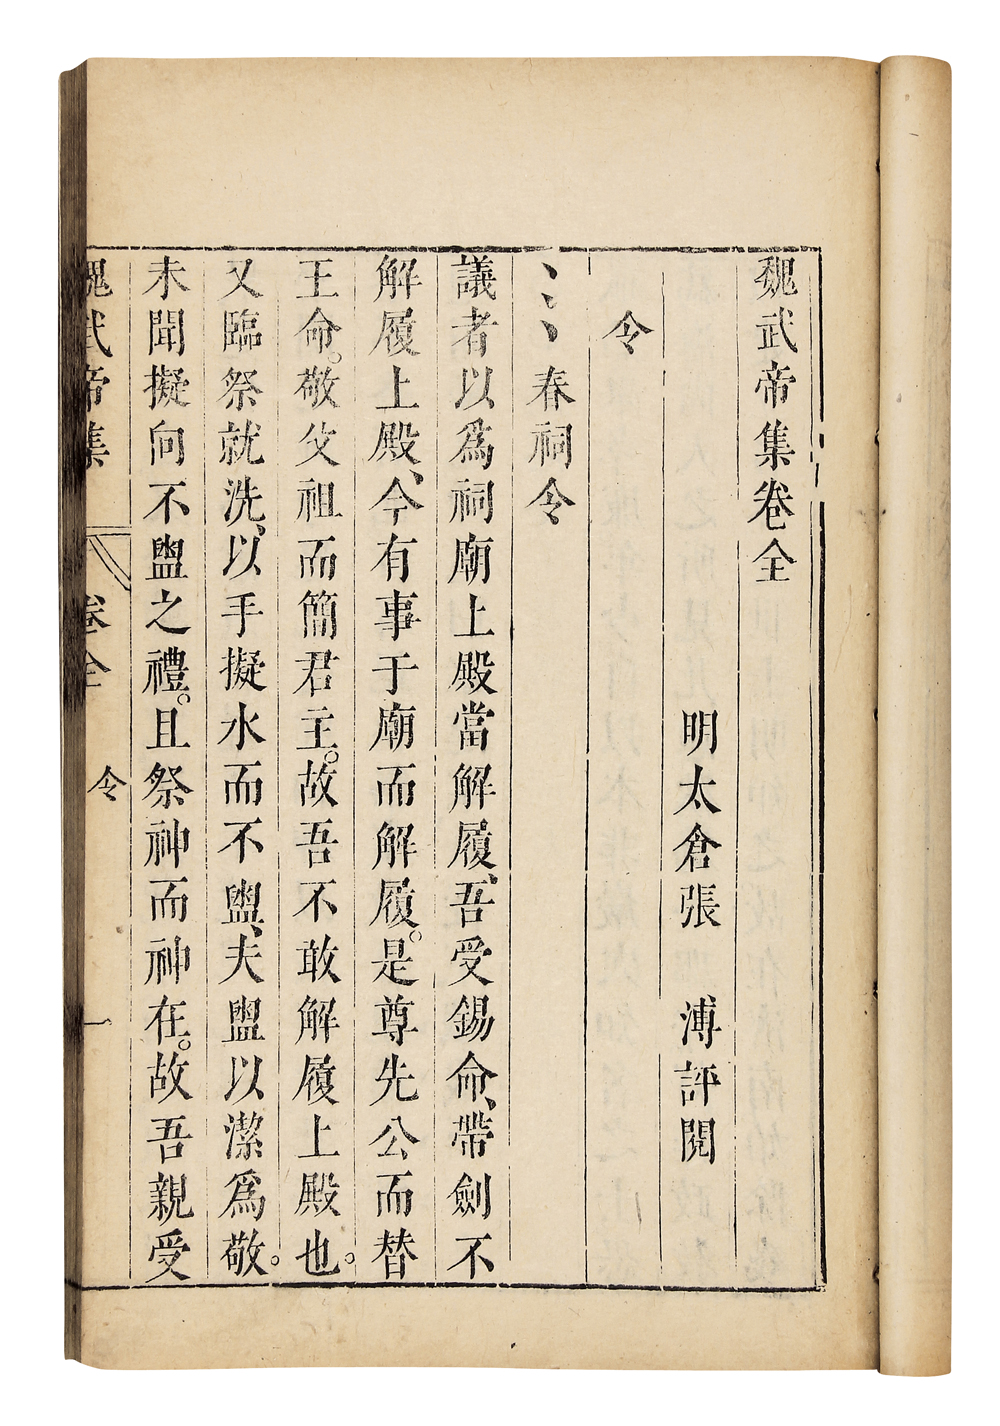 魏武帝集卷全
明太倉張 溥評閱
令
春祠令
議者以爲祠廟上殿當解履、吾受錫命、帶劍不
解履上殿、今有事于廟而解履。是尊先公而替
王命。敬父祖而簡君主。故吾不敢解履上殿也。
又臨祭就洗、以手擬水而不盥、夫盥以潔爲敬。
未聞擬向不盥之禮。且祭神而神在。故吾親受
魏武帝集 卷全 令 一